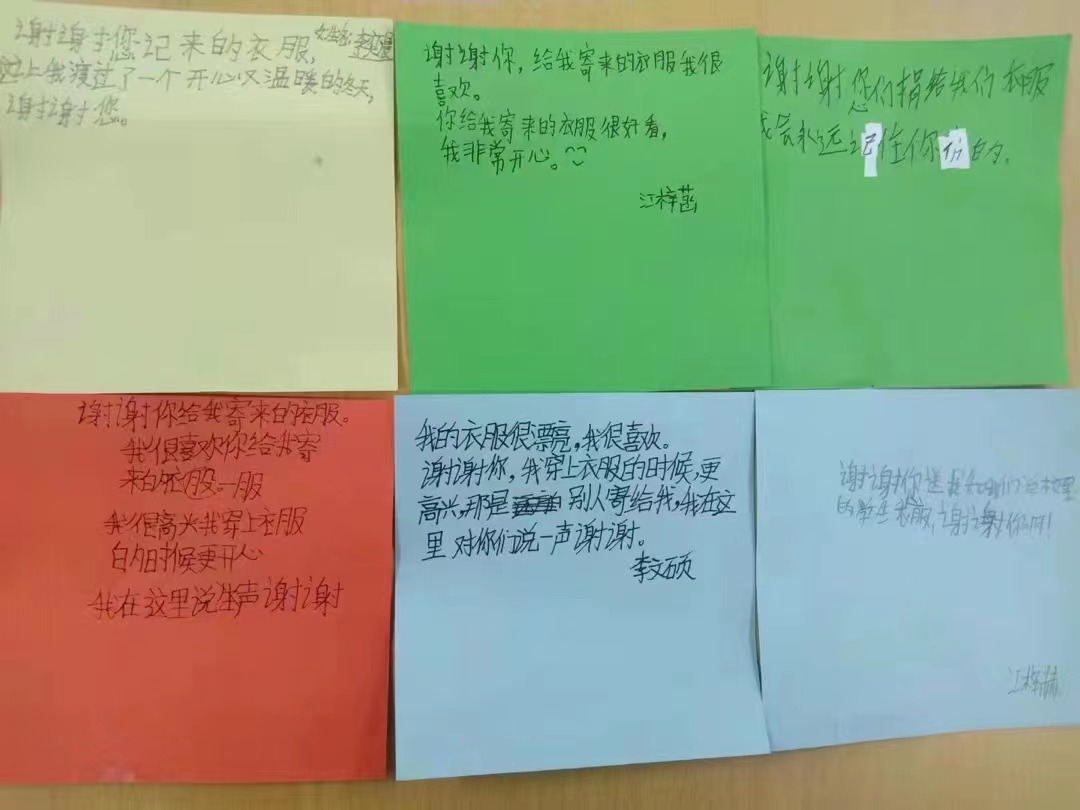 谢谢您记来的衣服,
让我渡过了一个开心又温暖的冬天,
谢谢您。
谢谢你,给我寄来的衣服我很
喜欢。
你给我寄来的衣服很好看,
我非常开心。
江梓菡
谢谢您们捐给我们衣服
我会永远记住你们的.
谢谢你给我寄来的衣服。
我很喜欢你给我寄
来的衣服。一服
我很高兴我穿上衣服
的时候更开心
我在这里说声谢谢
我的衣服很漂亮,我很喜欢。
谢谢你,我穿上衣服的时候,更
高兴,那是别人寄给我,我在这
里对你们说一声谢谢。
李文硕
谢谢你送给我们这里
的学生衣服,谢谢你们!
江梓